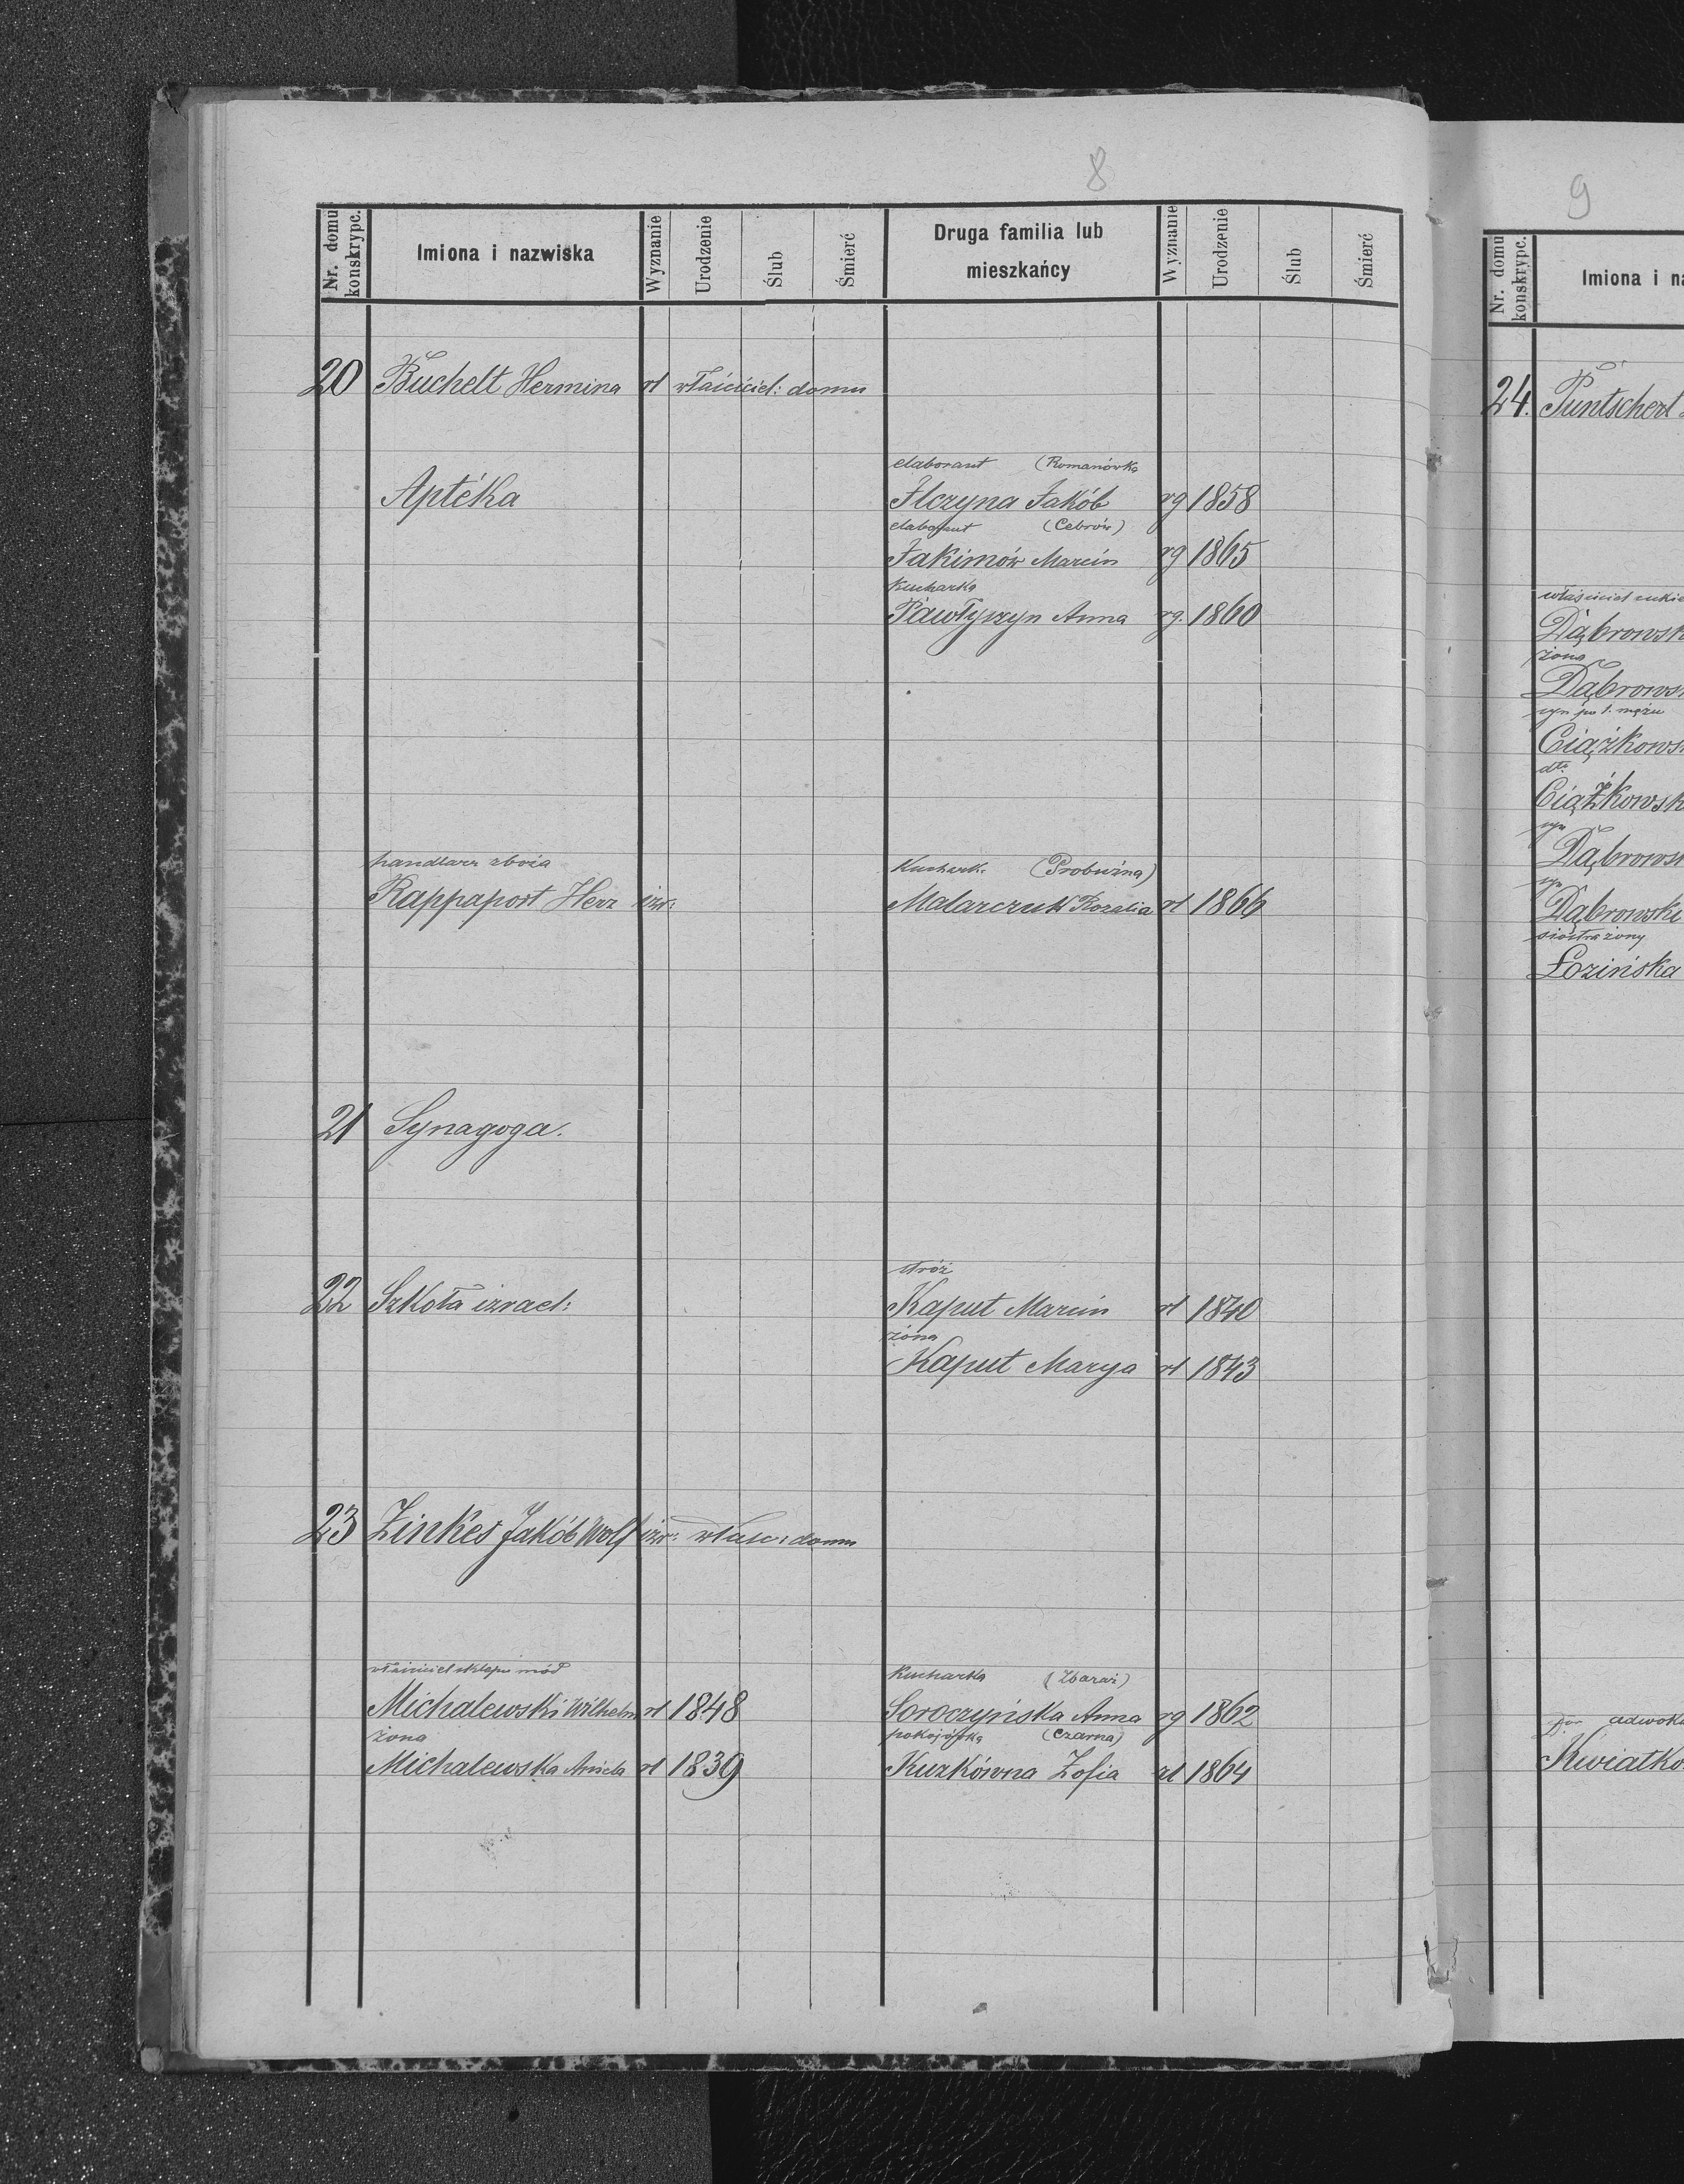 8
Nr. domu konskrypc. Imiona i nazwiska Wyznanie Urodzenie Ślub Śmierć Druga familia lub mieszkańcy Wyznanie Urodzenie Ślub Śmierć
20 Buchelt Hermina rl właściciel: domu
elaborant (Romanówka
Aptéka Ilczyna Jakób rg 1858
elaborant (Cebrów)
Jakimów Marcin rg 1865
Kucharka
Pawłyszyn Anna rg. 1860
handlarz zboża Kuchark. (Probużna)
Rappaport Herz izr: Malarczuk Rozalia rl 1866
21 Synagoga.
stróż
22 Szkoła izrael: Kaput Marcin rl 1840
żona
Kaput Marya rl 1843
23 Zinkes Jakób Wolf izr: własc: domu
właściciel sklepu mód Kucharka (Zbaraż)
Michalewski Wilhelm rl 1848 Soroczyńska Anna rg 1862
żona pokojówka (Czarna)
Michalewska Aniela rl 1839 Kuzkówna Zofia rl 1864
9
Nr. domu konskrypc. Imiona i na
24. Puntschert
właściciel cukie
Dąbrowsk
żona
Dąbrows
syn po 1. mężu
Ciążkows
dto
Ciążkowsk
syn
Dąbrows
syn
Dąbrowski
siostra żony
Łozińska
adwoka
Kwiatko